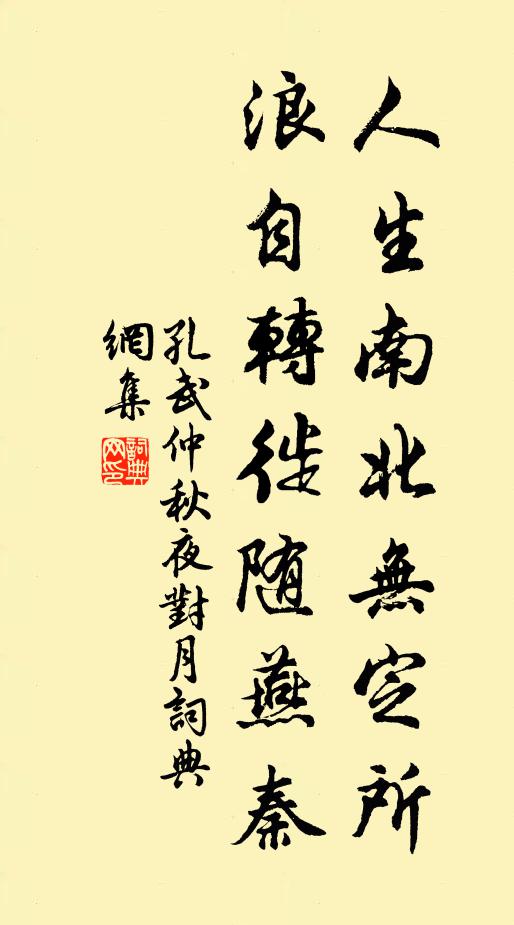 人生南北無定所
浪自轉徙随燕秦
孔武仲秋夜對月詞典
網集
詞典
网印